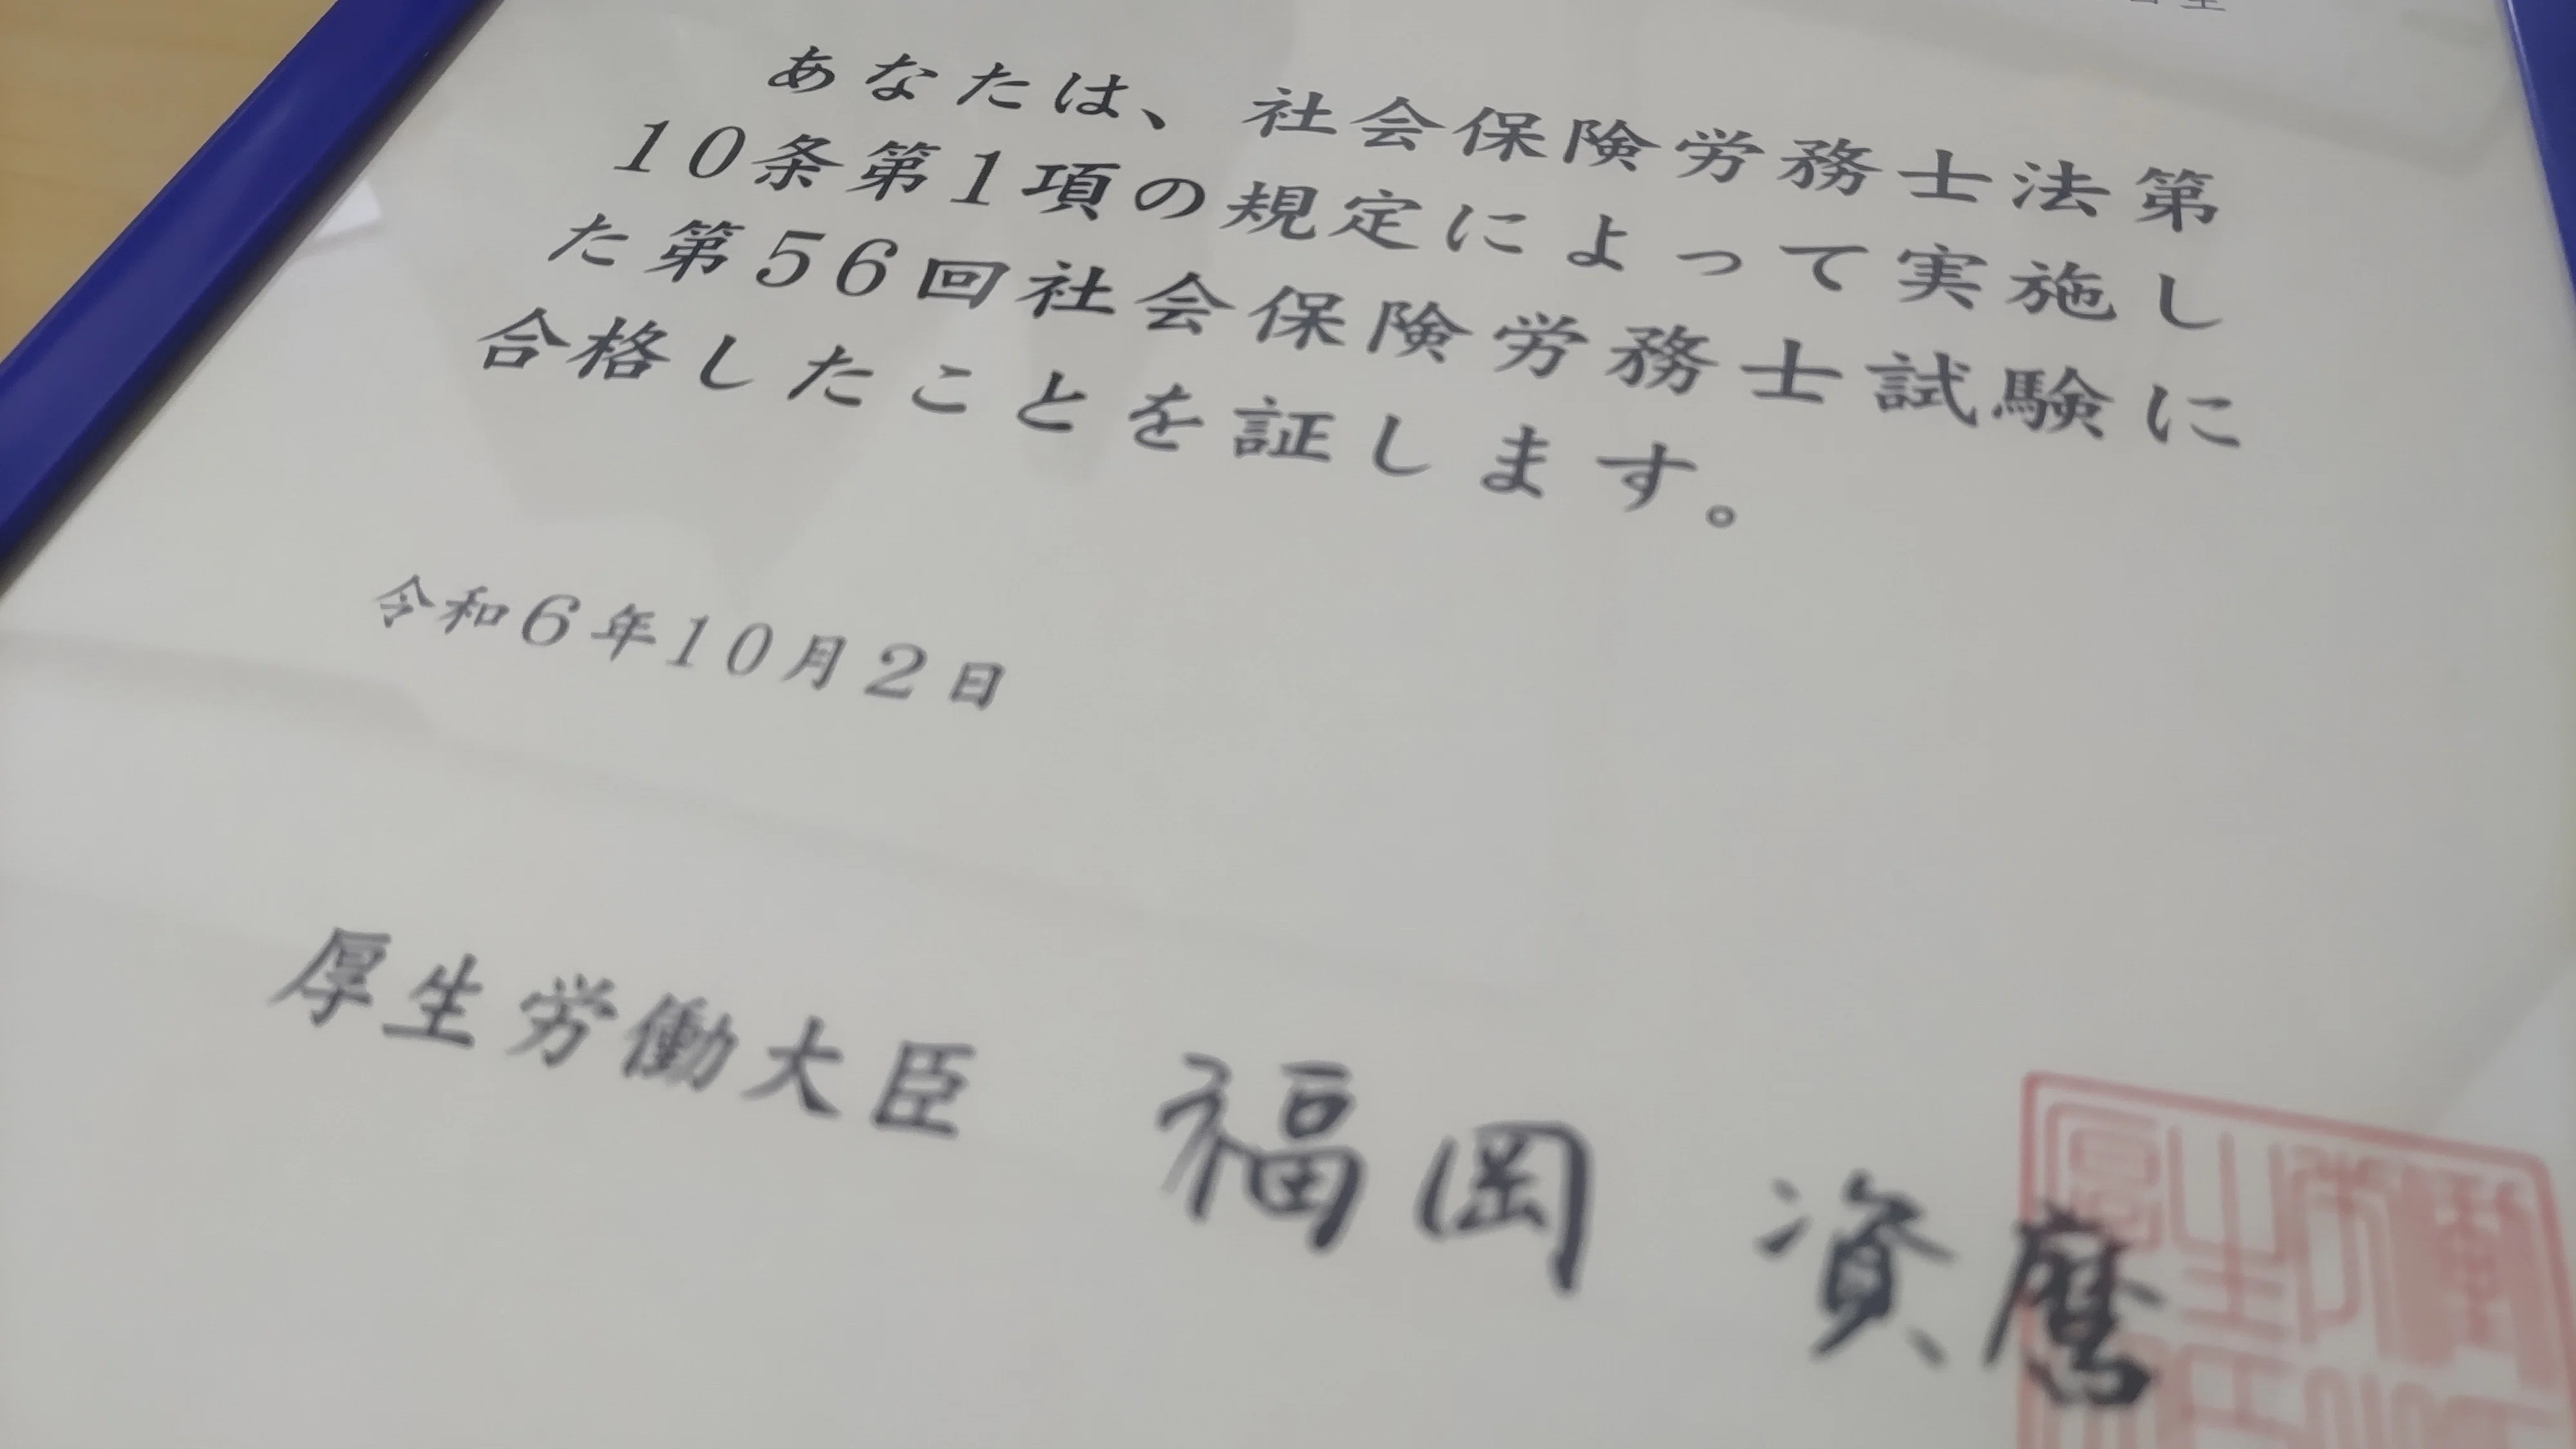 あなたは、社会保険労務士法第
10条第1項の規定によって実施し
た第56回社会保険労務士試験に
合格したことを証します。
令和6年10月2日
厚生労働大臣 福岡 資麿